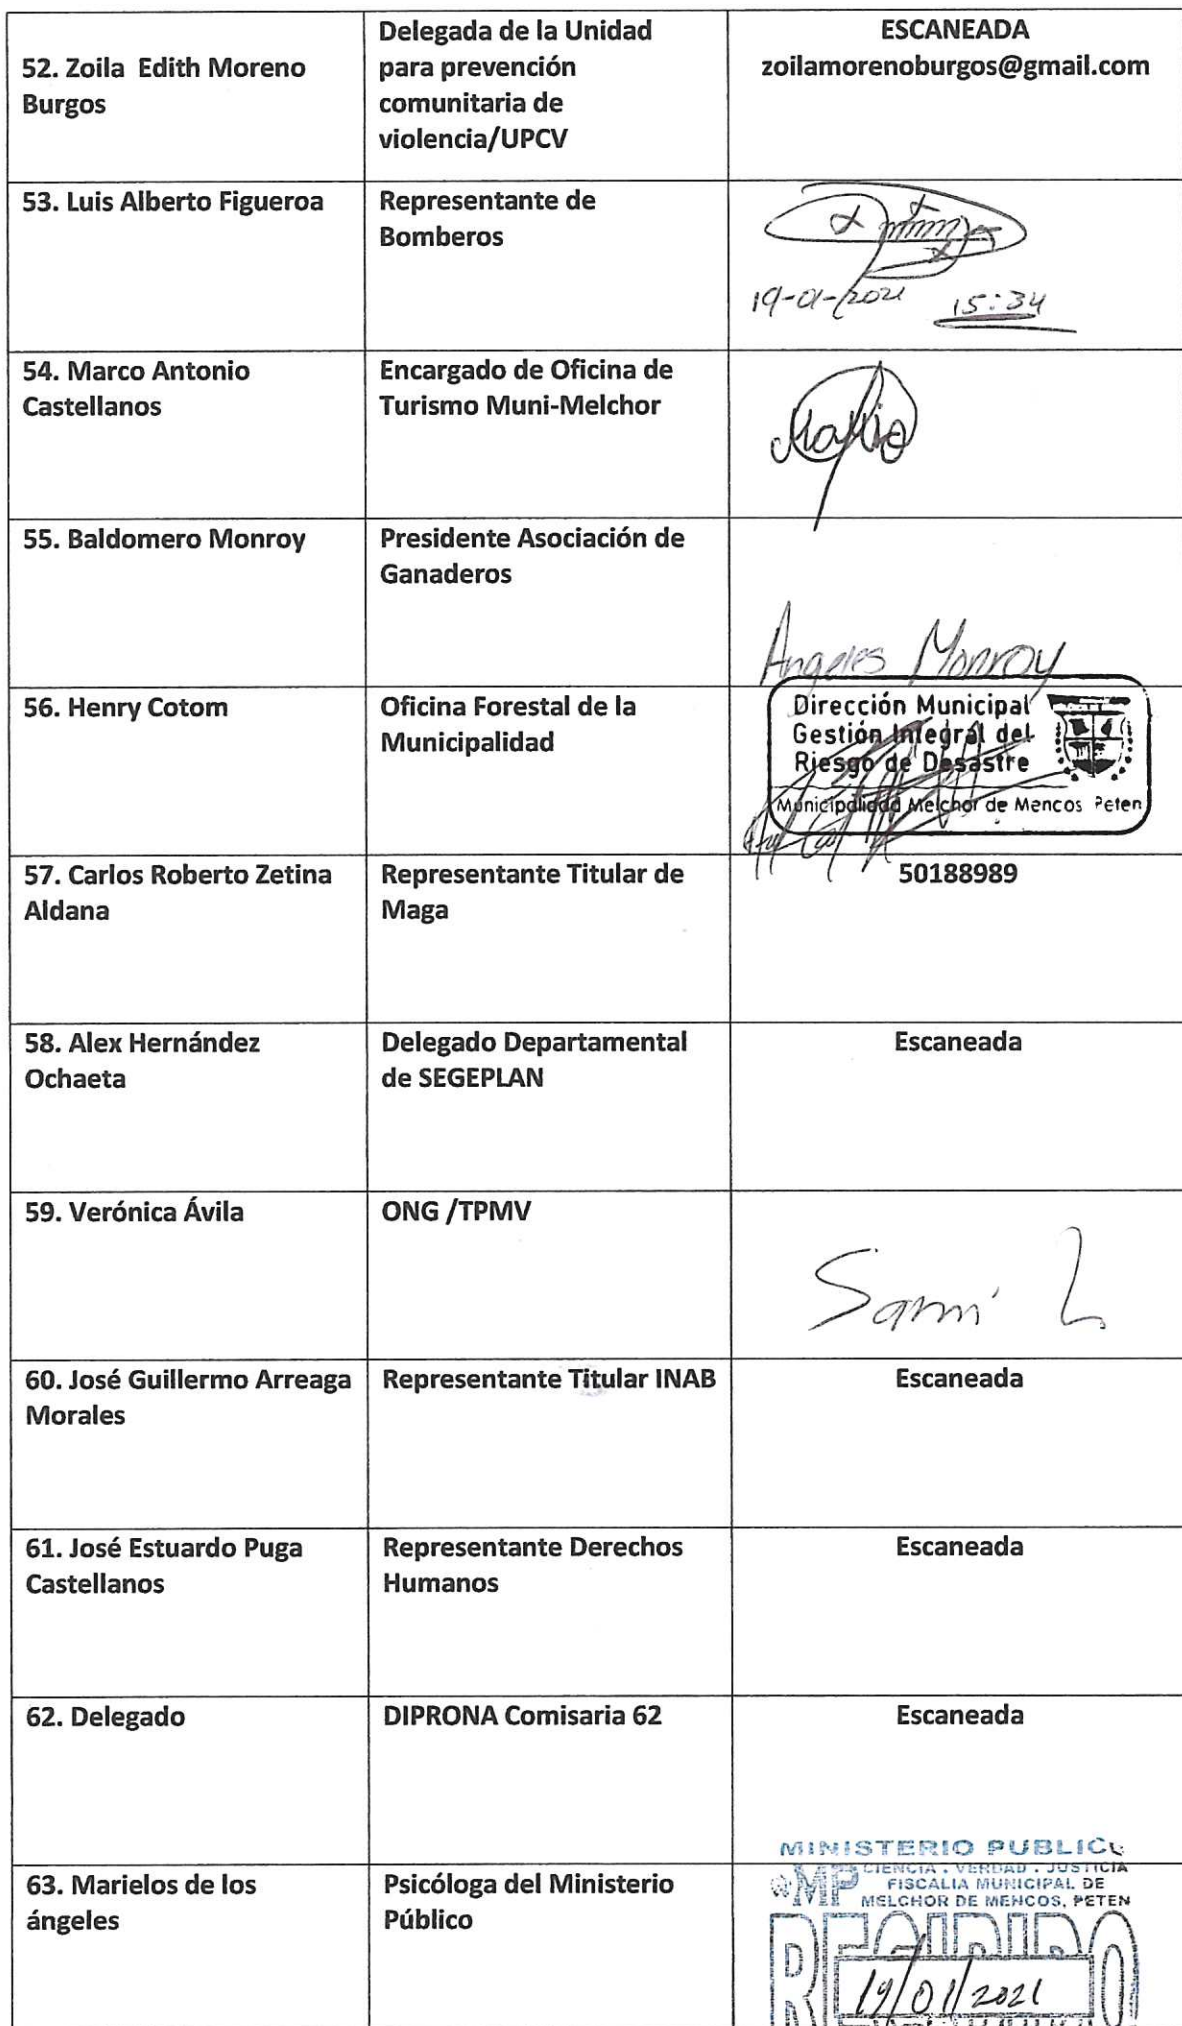 52. Zoila Edith Moreno
Burgos
Delegada de la Unidad
para prevención
comunitaria de
violencia/UPCV
ESCANEADA
zoilamorenoburgos@gmail.com
53. Luis Alberto Figueroa
Representante de
Bomberos
19-01-2021 15:34
54. Marco Antonio
Castellanos
Encargado de Oficina de
Turismo Muni-Melchor
55. Baldomero Monroy
Presidente Asociación de
Ganaderos
Angeles Monroy
56. Henry Cotom
Oficina Forestal de la
Municipalidad
Dirección Municipal
Gestión Integral del
Riesgo de Desastre
Municipalidad Melchor de Mencos Peten
57. Carlos Roberto Zetina
Aldana
Representante Titular de
Maga
50188989
58. Alex Hernández
Ochaeta
Delegado Departamental
de SEGEPLAN
Escaneada
59. Verónica Ávila
ONG /TPMV
Sami L
60. José Guillermo Arreaga
Morales
Representante Titular INAB
Escaneada
61. José Estuardo Puga
Castellanos
Representante Derechos
Humanos
Escaneada
62. Delegado
DIPRONA Comisaria 62
Escaneada
63. Marielos de los
ángeles
Psicóloga del Ministerio
Público
MINISTERIO PUBLICO
MP CIENCIA . VERDAD . JUSTICIA
FISCALIA MUNICIPAL DE
MELCHOR DE MENCOS, PETEN
RECIBIDO
19/01/2021